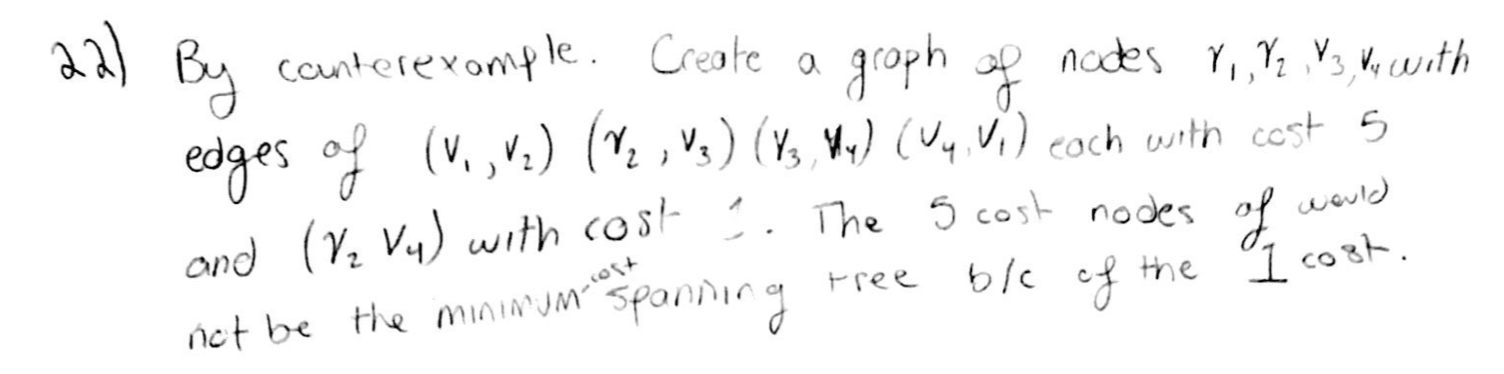 22) By counterexample. Create a graph of nodes V₁, V₂, V₃, V₄ with
edges of (V₁, V₂) (V₂, V₃) (V₃, V₄) (V₄, V₁) each with cost 5
and (V₂ V₄) with cost 1. The 5 cost nodes of would
not be the minimum-cost spanning tree b/c of the 1 cost.